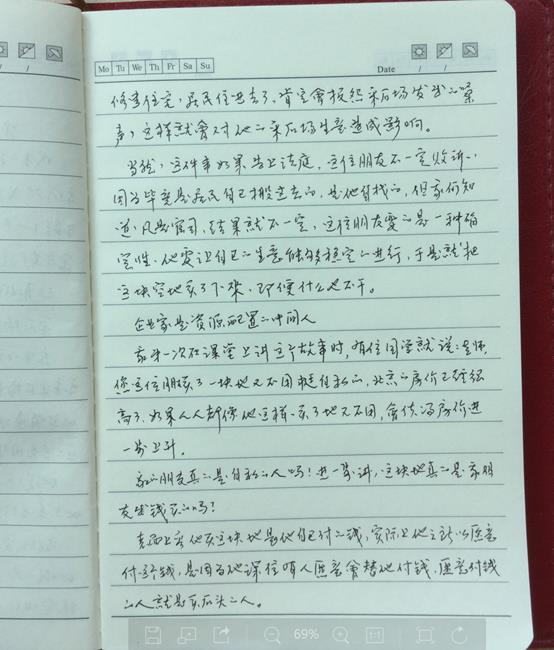 Mo Tu We Th Fr Sa Su
Date / /
/ /
修建住宅,居民住进去了,肯定会报怨采石场发出的噪
声,这样就会对他的采石场生意造成影响。
当然,这件事如果告上法庭,这位朋友不一定败诉,
因为毕竟是居民自己搬进去的,是他自找的,但家何知
道,凡是官司,结果就不一定,这位朋友要的是一种确
定性。他要让自己的生意能够稳定的进行,于是就把
这块空地买了下来,即便什么也不干。
企业家是资源配置的中间人
我第一次在课堂上讲这个故事时,有位同学就说:老师,
您这位朋友买了一块地又不用挺自私的,北京的房价已经很
高了,如果人人都像他这样,买了地又不用,会使得房价进
一步上升。
我的朋友真的是自私的人吗?进一步讲,这块地真的是家朋
友出钱买的吗?
表面上看他买这块地是他自己付的钱,实际上他之所以愿意
付这个钱,是因为他深信有人愿意会替他付钱,愿意付钱
的人就是买石头的人。
69%
1:1